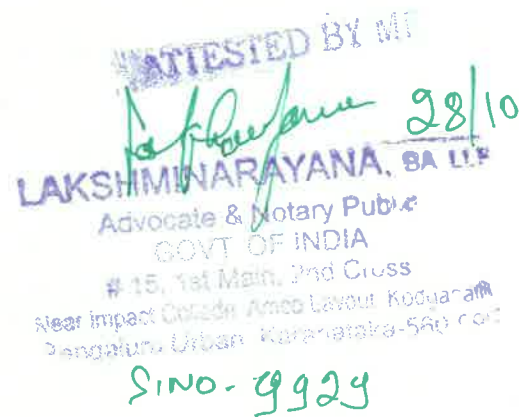 ATTESTED BY
28/10
LAKSHMINARAYANA, BA LLB
Advocate & Notary Public
GOVT OF INDIA
# 15, 1st Main, 2nd Cross
Near Impact College, Amco Layout
Bengaluru Urban Karanataka-560
SINO- 9929